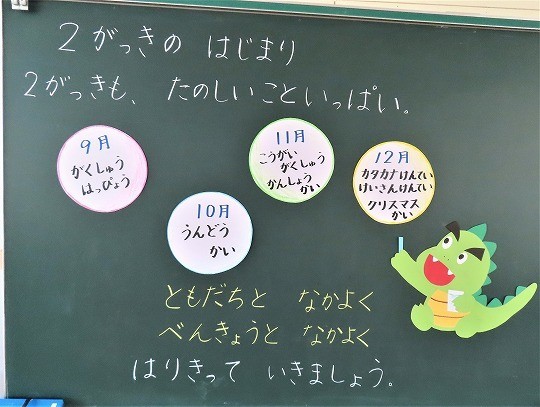 ２がっきの はじまり
２がっきも、 たのしいこといっぱい。
９月
がくしゅう
はっぴょう
10月
うんどう
かい
11月
こうがい
がくしゅう
かんしょう
かい
12月
カタカナけんてい
けいさんけんてい
クリスマス
かい
ともだちと なかよく
べんきょうと なかよく
はりきって いきましょう。